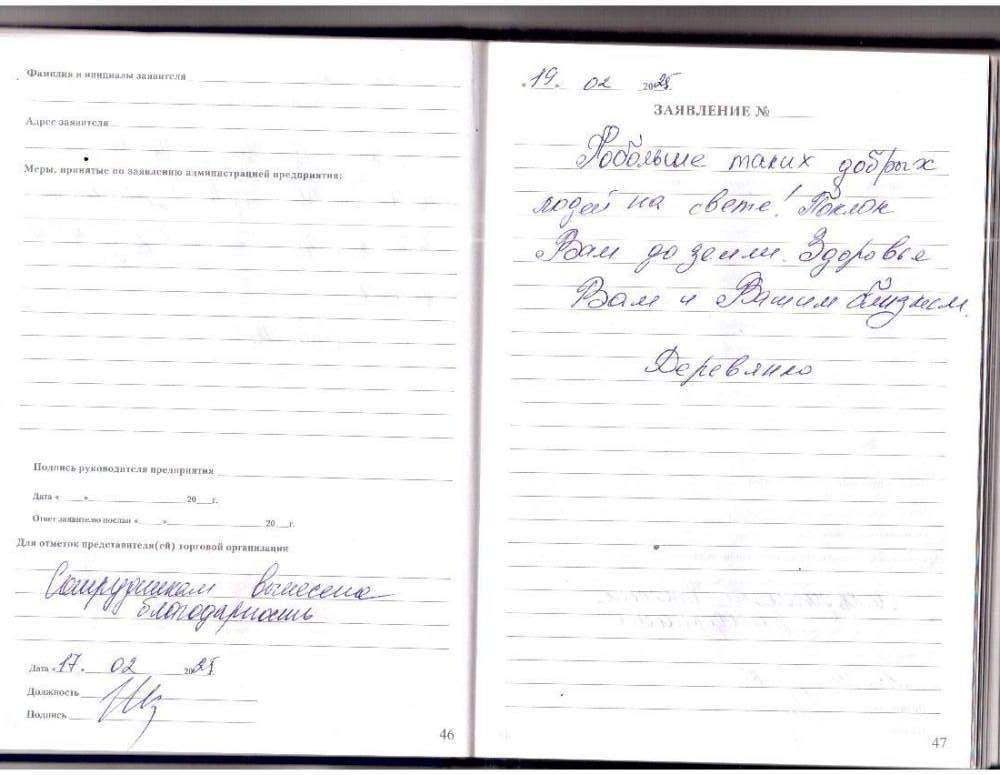 Фамилия и инициалы заявителя
Адрес заявителя
Меры, принятые по заявлению администрацией предприятия:
Подпись руководителя предприятия
Дата « » 20 г.
Ответ заявителю послан « » 20 г.
Для отметок представителя(ей) торговой организации
Сотрудникам вынесена
благодарность
Дата «17» 02 2025
Должность
Подпись
46
«19» 02 2025
ЗАЯВЛЕНИЕ №
Побольше таких добрых
людей на свете! Поклон
Вам до земли. Здоровье
Вам и Вашим близким.
Деревянко
47